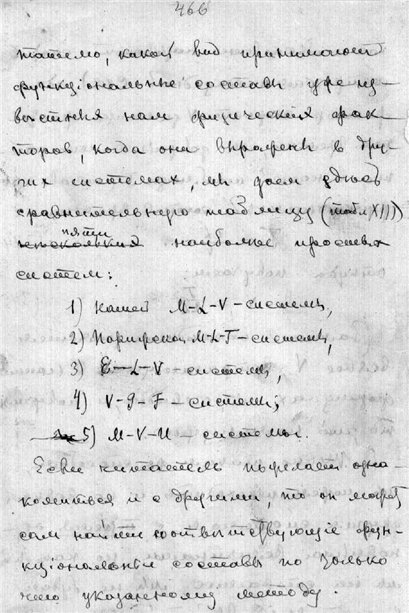 466
тателю, какой вид принимают
функціональные составы уже из-
вѣстныя нам физическія фак-
торов, когда они выражены в дру-
гих системах, мы даем здѣсь
сравнительную таблицу (табл XIII)
пяти
наиболѣе простых
систем:
1) нашей M-L-V-системы,
2) Парижской M-L-T-системы,
3) E-L-V-системы,
4) V-g-F-системы;
5) M-V-U-системы.
Если читатель пожелает озна-
комиться и с другими, то он может
сам найти соотвѣтствующіе фун-
кціональные составы по только
что указанному методу.